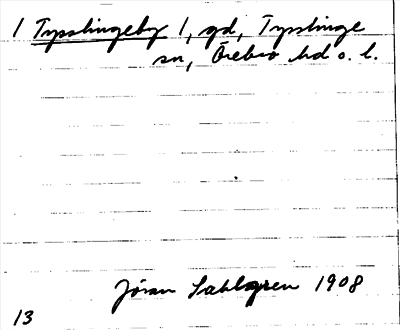 1 Tysslingeby 1, gd, Tysslinge
sn, Örebro hd o. l.
Jöran Sahlgren 1908
13